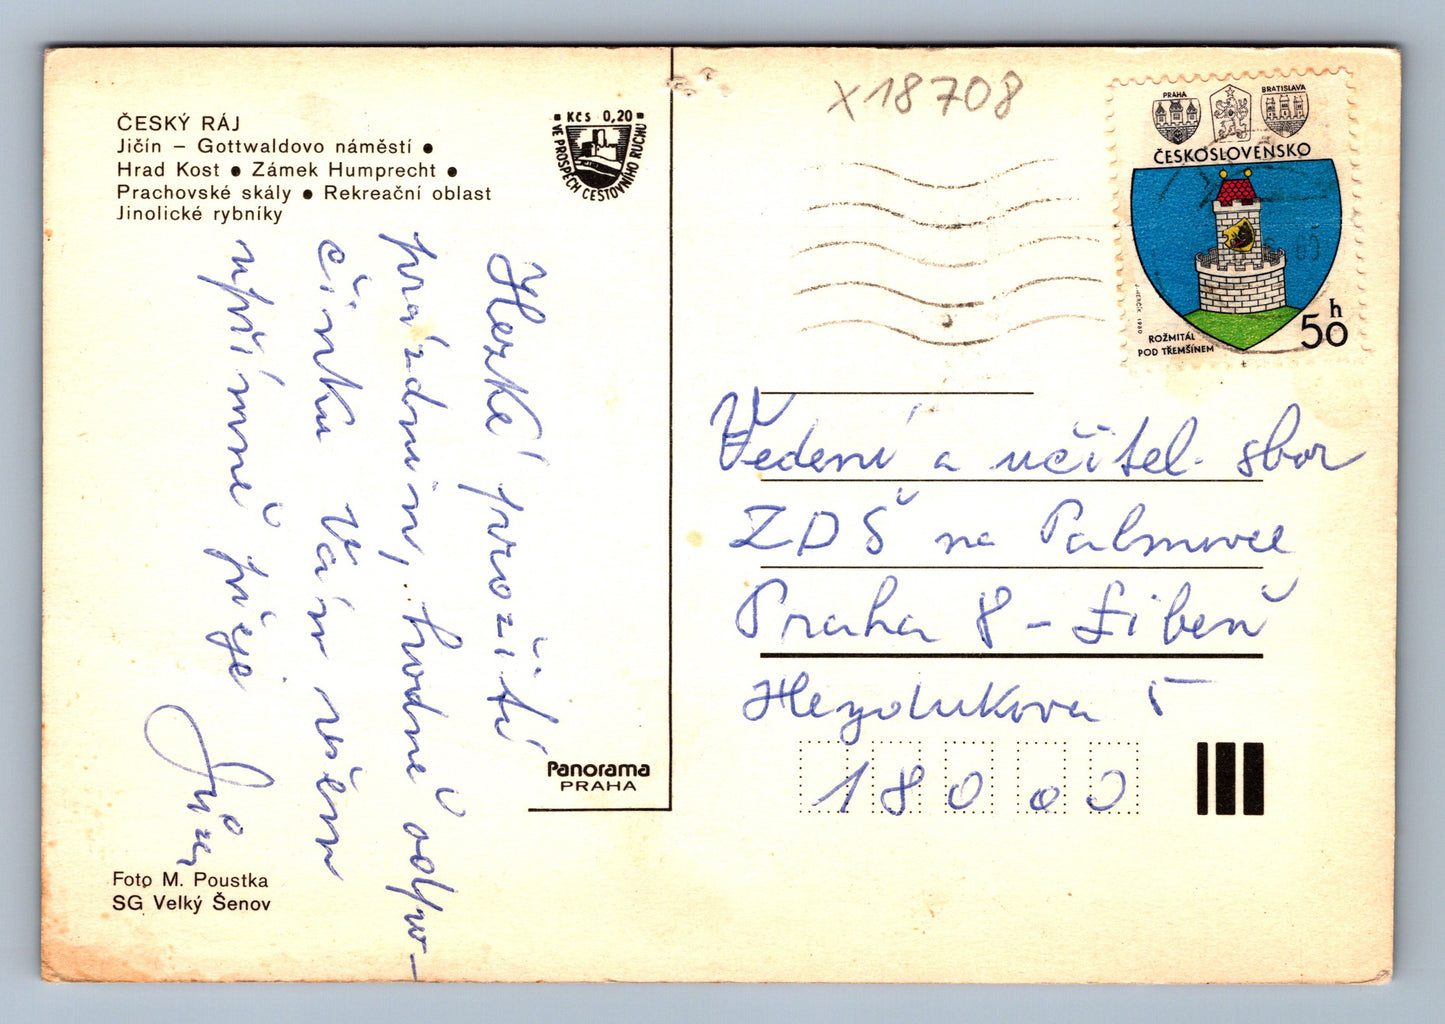 ČESKÝ RÁJ
Jičín – Gottwaldovo náměstí ●
Hrad Kost ● Zámek Humprecht ●
Prachovské skály ● Rekreační oblast
Jinolické rybníky
■ Kčs 0,20 ■
VE PROSPĚCH CESTOVNÍHO RUCHU
Hezké prožití
prázdnin, hodně odpo-
činku Vám všem
upřímně přeje
Panorama
PRAHA
Foto M. Poustka
SG Velký Šenov
x18708
PRAHA
BRATISLAVA
ČESKOSLOVENSKO
J. HERČÍK 1980
ROŽMITÁL
POD TŘEMŠÍNEM
50 h
Vedení a učitel. sbor
ZDŠ na Palmovce
Praha 8 – Libeň
Heydukova 5
180 00